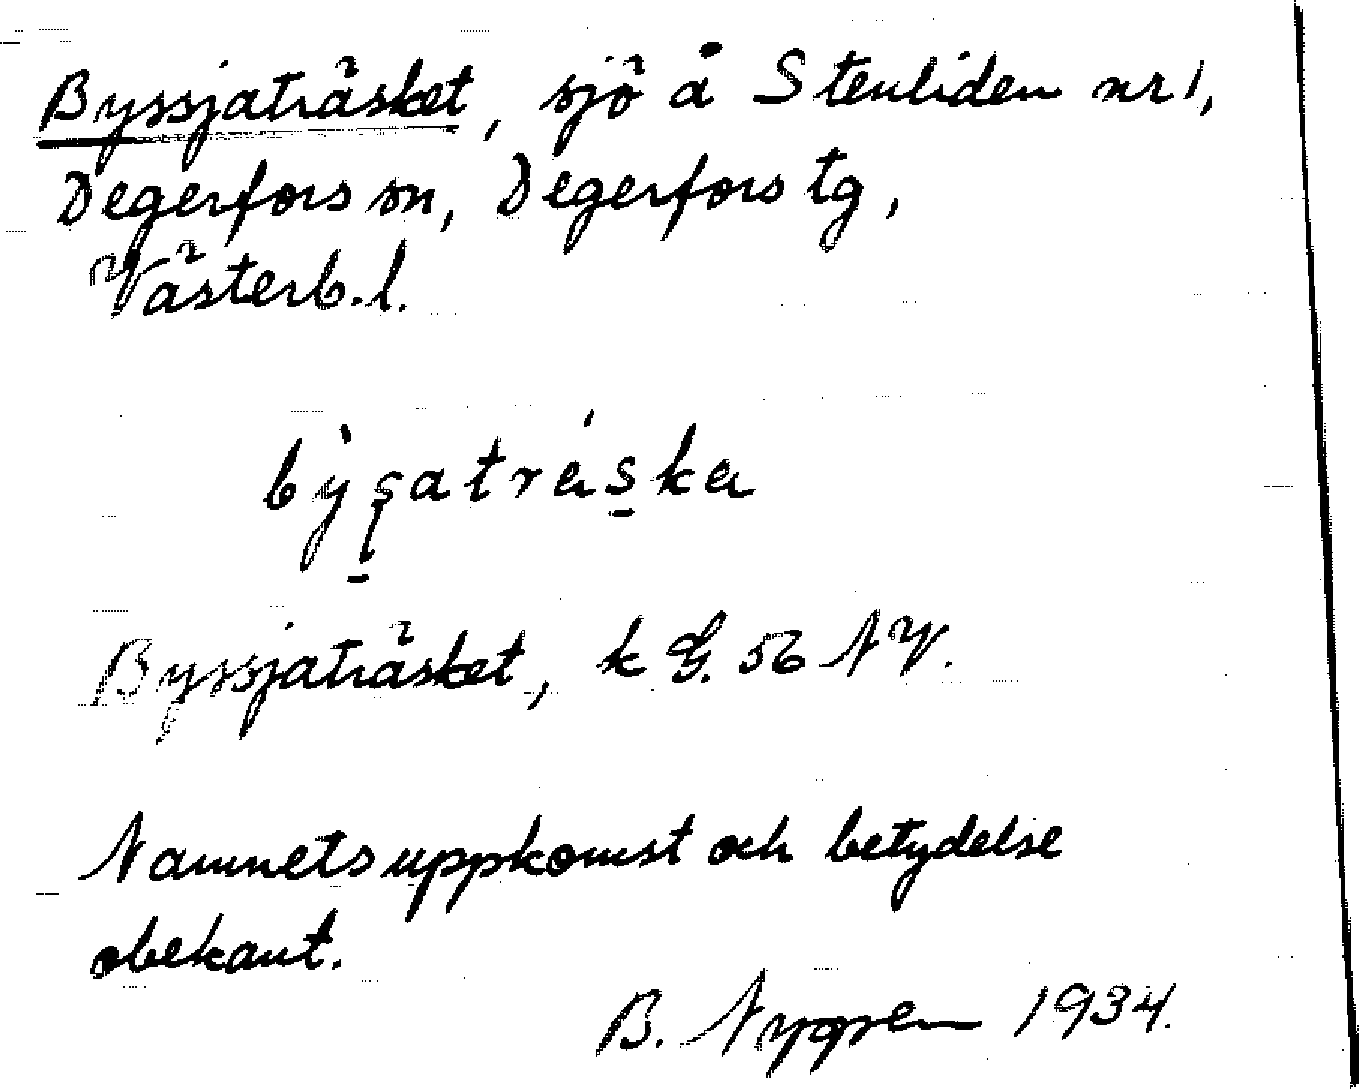 Byssjaträsket, sjö å Stenliden nr 1,
Degerfors sn, Degerfors tg,
Västerb. l.
bỳʂatráska
Byssjaträsket, k G. 56 NV.
Namnets uppkomst och betydelse
obekant.
B. Nygren 1934.